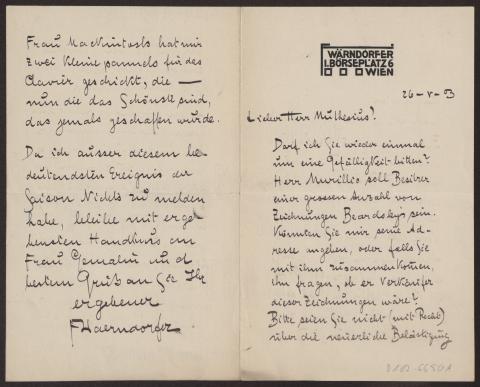 WÄRNDORFER
I. BÖRSEPLATZ 6
WIEN
26-V-03
Lieber Herr Muthesius!
Darf ich Sie wieder einmal
um eine Gefälligkeit bitten?
Herr Murillio soll Besitzer
einer grossen Anzahl von
Zeichnungen Beardsley's sein.
Könnten Sie mir seine Ad-
resse angeben, oder falls Sie
mit ihm zusammenkomen,
ihn fragen, ob er Verkäufer
dieser Zeichnungen wäre?
Bitte seien Sie nicht (mit Recht)
über die neuerliche Belästigung
D102-6650A
Frau Mackintosh hat mir
zwei kleine pannels für das
Clavier geschickt, die —
nun die das Schönste sind,
das jemals geschaffen wurde.
Da ich ausser diesem be
deutendsten Ereignis der
Saison Nichts zu melden
habe, bleibe mit erge
bensten Handkuss an
Frau Gemahlin und
bestem Gruß an Sie Ihr
ergebener
FWaerndorfer